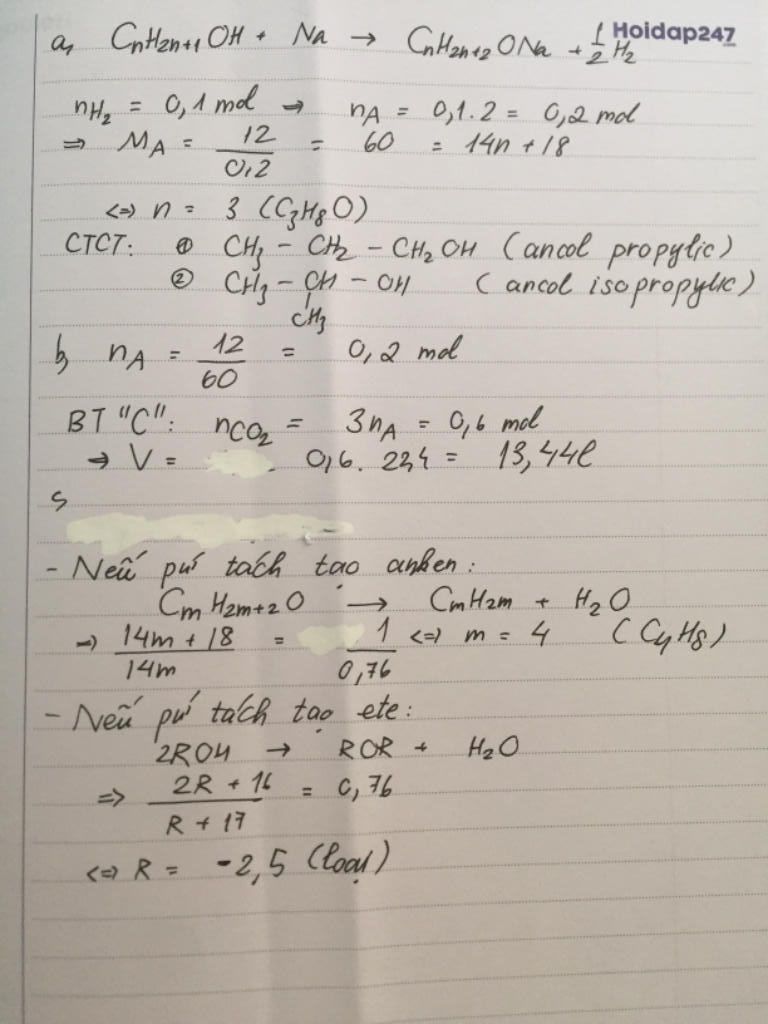 Hoidap247
a, CnH2n+1OH + Na → CnH2n+2ONa + 1/2 H2
nH2 = 0,1 mol → nA = 0,1.2 = 0,2 mol
⇒ MA = 12/0,2 = 60 = 14n + 18
⇔ n = 3 (C3H8O)
CTCT: ① CH3 - CH2 - CH2OH (ancol propylic)
② CH3 - CH - OH (ancol isopropylic)
CH3
b, nA = 12/60 = 0,2 mol
BT "C": nCO2 = 3nA = 0,6 mol
→ V = 0,6. 22,4 = 13,44l
c,
- Nếu pứ tách tạo anken:
CmH2m+2O → CmH2m + H2O
→ 14m + 18/14m = 1/0,76 ⇔ m = 4 (C4H8)
- Nếu pứ tách tạo ete:
2ROH → ROR + H2O
⇒ 2R + 16/R + 17 = 0,76
⇔ R = -2,5 (loại)